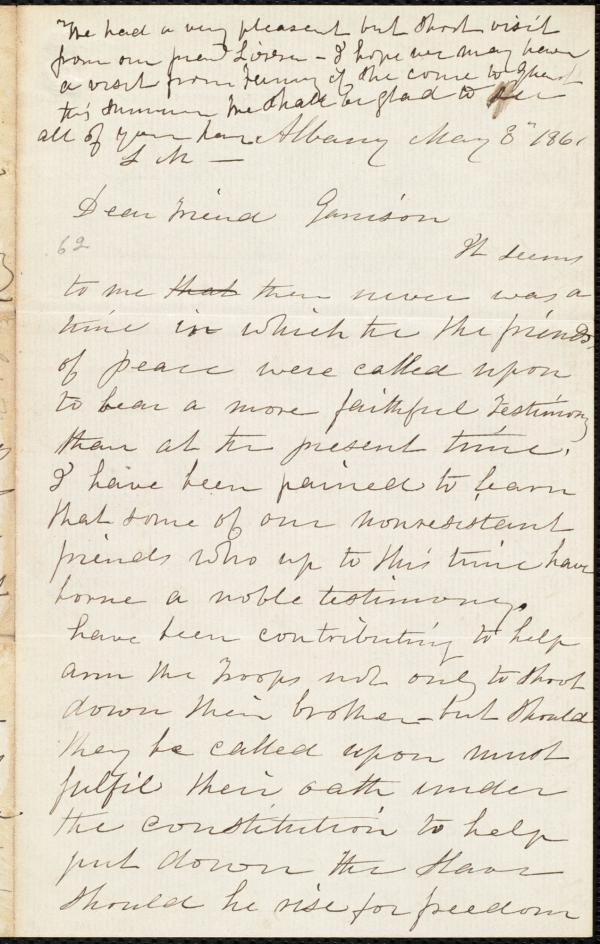 We had a very pleasent but short visit
from our friend - I hope we may have
a visit from Fanny if she come to
this summer We shall be glad to see
all of you here Albany May 8" 1861
L M -
Dear Friend Garrison
62
It seems
to me that there never was a
time in which the the friends
of peace were called upon
to bear a more faithful Testimony
than at the present time.
I have been pained to learn
that some of our nonresistant
friends who up to this time have
borne a noble testimony,
have been contributing to help
arm the Troops not only to shoot
down their brother - but should
they be called upon must
fulfil their oath under
the constitution to help
put down the Slave
should he rise for freedom